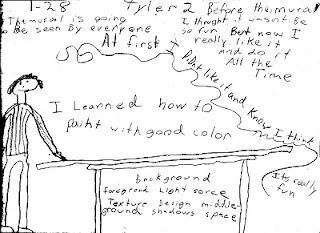 1-28
Tyler 2
The mural is going
to be seen by everyone
Before the mural
I thought it wasnt be
so fun But now I
really like it
and do it
All the
Time
At first I
didnt like it and know I think
Its really
fun
I Learned how to
paint with good color
Background
foreground Light sorce
Texture Design middle
ground shadows space